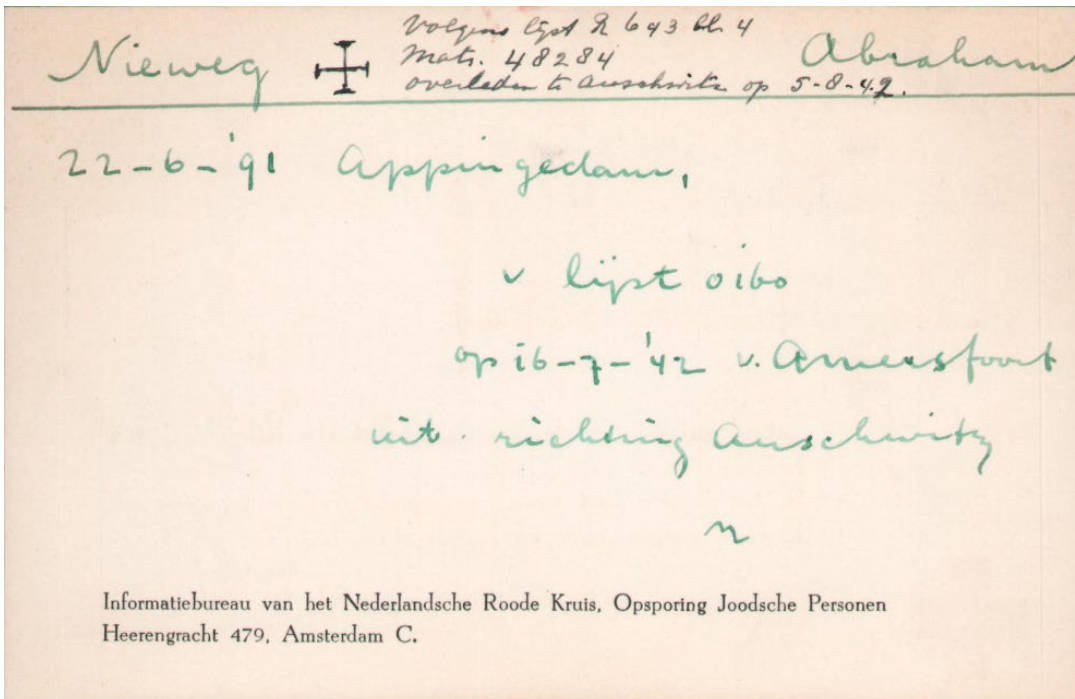 Nieweg Abraham
Volgens lijst R 643 bl. 4
Matr. 48284
overleden te Auschwitz op 5-8-42.
22-6-'91 Appingedam,
v lijst 0160
op 16-7-'42 v. Amersfoort
uit. richting Auschwitz
n
Informatiebureau van het Nederlandsche Roode Kruis, Opsporing Joodsche Personen
Heerengracht 479, Amsterdam C.